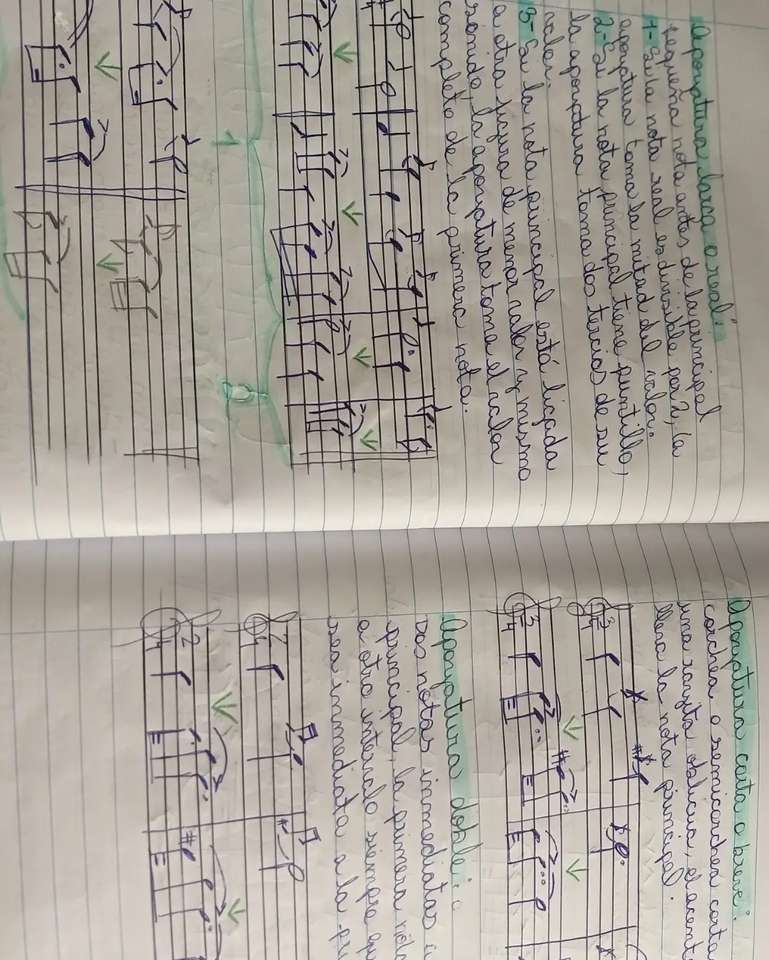 Apoyatura larga o real:
pequeña nota antes de la principal
1- Si la nota real es divisible por 2, la
apoyatura toma la mitad del valor.
2- Si la nota principal tiene puntillo,
la apoyatura toma dos tercios de su
valor.
3- Si la nota principal está ligada
a otra figura de menor valor y mismo
sonido, la apoyatura toma el valor
completo de la primera nota.
Apoyatura corta o breve:
corchea o semicorchea corta
una rayita oblicua, el acent
lleva la nota principal.
3
4
3
4
Apoyatura doble:
dos notas inmediatas
principal, la primera
a otro intervalo siempre
sea inmediata a la
2
4
2
4